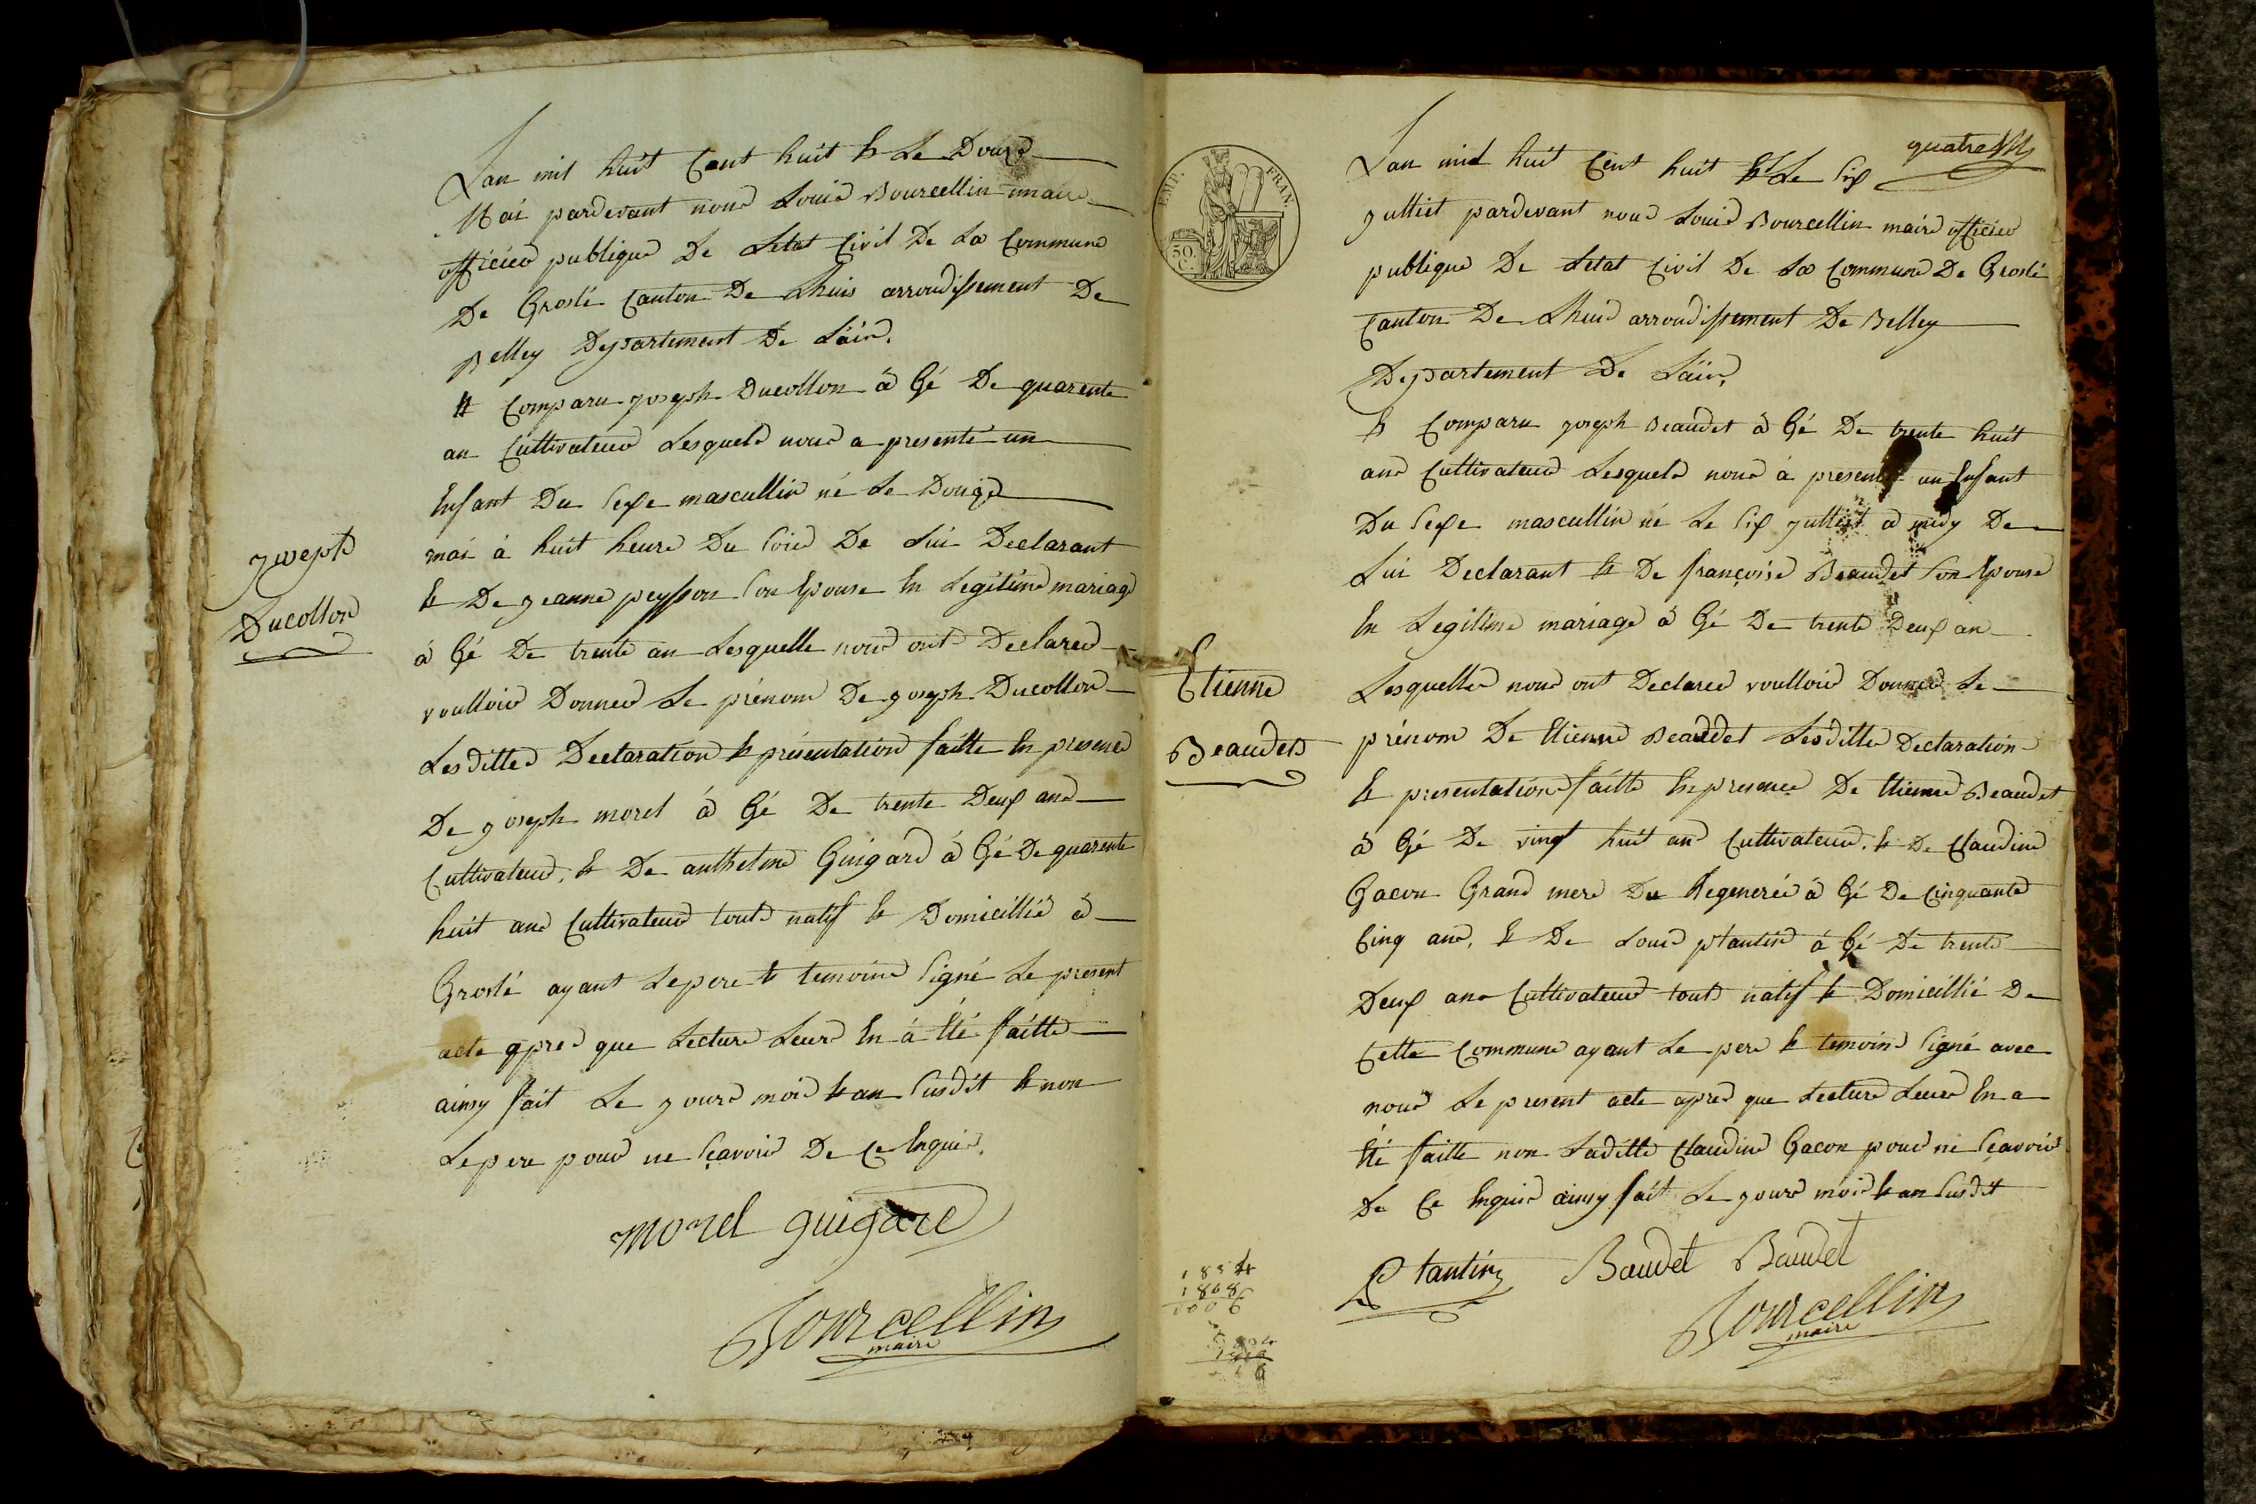 Lan mil huit Cent huit & Le Douze
Mai pardevant nous Louis Bourcellin maire
officier publique De Letat Civil De La Commune
De Groslé Canton De Lhuis arrondissement De
Belley Departement De Láin.
& Comparu joseph Ducollon á Gé De quarente
an Cultivateur Lesquels nous a presenté un
Enfant Du Sexe mascullin né Le Douze
mai á huit heure Du Soir De Lui Declarant
& De jeanne peysson Son Epouse En Legitime mariage
á Gé De trente an Lesquelle nous ont Declarer
voulloir Donner Le prénom De joseph Ducollon
Lesdittes Declaration & présentation faitte En presence
De joseph morel á Gé De trente Deux ans
Cultivateur, & De anthelme Guigard á Gé De quarente
huit ans Cultivateur touts natif & Domicillié á
Groslé ayant Le pere & temoins Signé Le present
acte apres que Lecture Leur En á Eté faitte
ainsy fait Le jours mois & an Susdit & non
Le pere pour ne Sçavoir De Ce Enquis.
joseph
Ducollon
morel guigard
Bourcellin
maire
EMP. FRAN.
50
C.
quatre
Lan mil huit Cent huit & Le Six
julliet pardevant nous Louis Bourcellin maire officier
publique De Letat Civil De La Commune De Groslé
Canton De Lhuis arrondissement De Belley
Departement De Láin,
& Comparu joseph Beaudet á Gé De trente huit
ans Cultivateur Lesquels nous á presenté un Enfant
Du Sexe mascullin né Le Six julliet á midy De
Lui Declarant & De françoise Beaudet Son Epouse
En Legitime mariage á Gé De trente Deux an
Lesquelles nous ont Declarer voulloir Donner Le
prénom De Etienne Beaudet Lesdittes Declaration
& presentation faitte En presence De Etienne Beaudet
á Gé De vingt huit ans Cultivateur, & De Claudine
Gacon Grand mere Du Regeneréé á Gé De Cinquante
Cinq ans, & De Louis plantin á Gé De trente
Deux ans Cultivateur touts natif & Domicillié De
Cette Commune ayant Le pere & temoins Signé avec
nous Le present acte apres que Lecture Leur En a
Eté faitte non Laditte Claudine Gacon pour ne Sçavoir
De Ce Enquis ainsy fait Le jours mois & an Susdit
Etienne
Beaudet
1854
1808
0006
Plantin Baudet Baudet
Bourcellin
maire